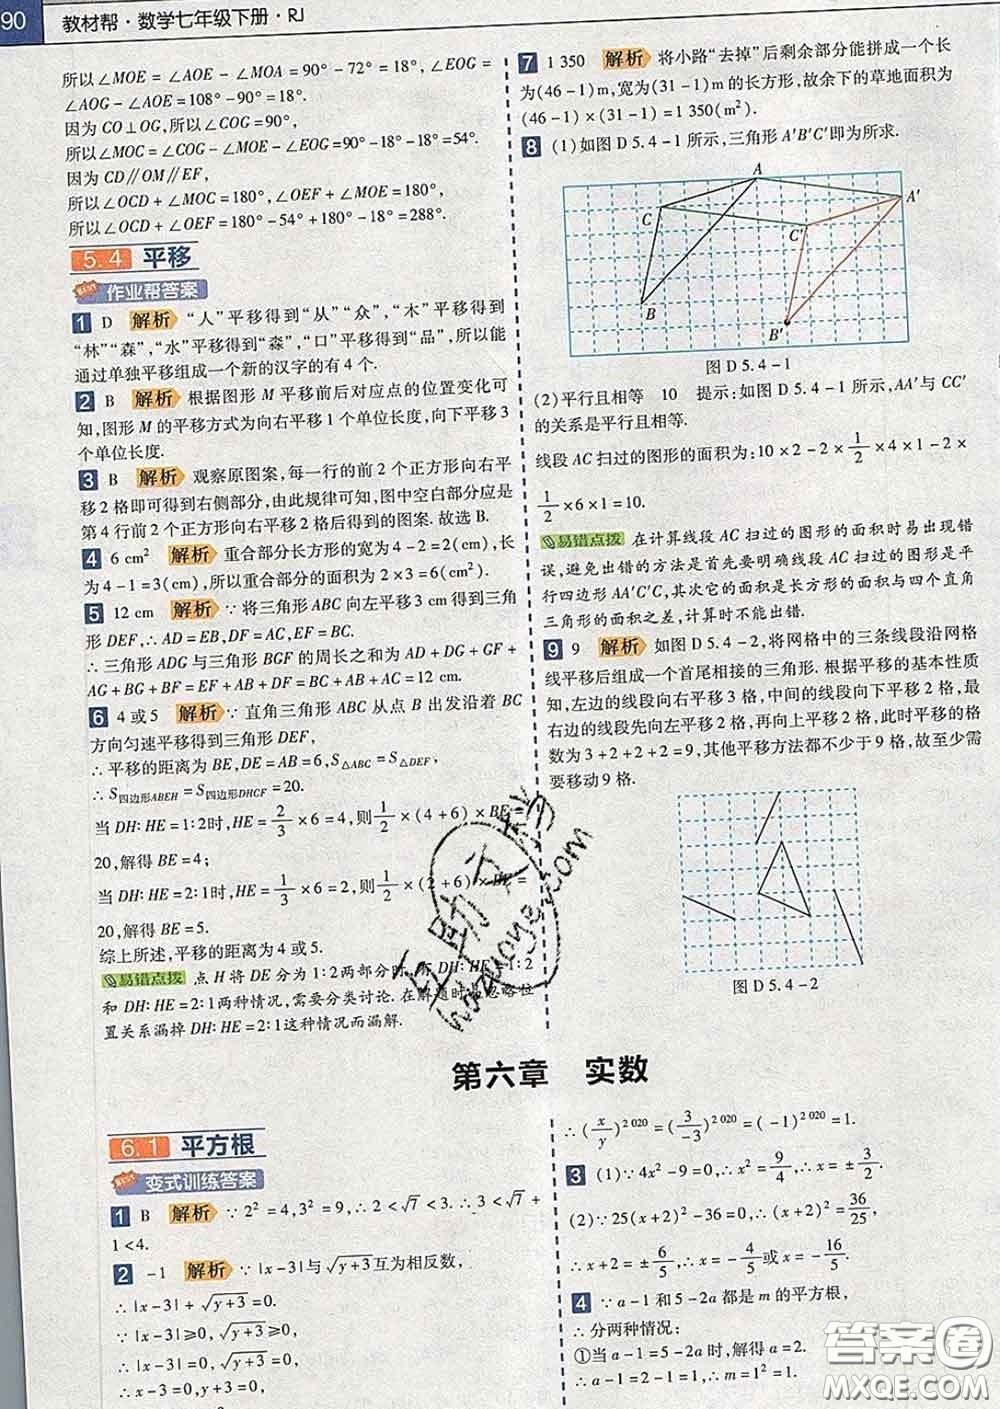 90 教材帮·数学七年级下册·RJ
所以∠MOE=∠AOE-∠MOA=90°-72°=18°,∠EOG=
∠AOG-∠AOE=108°-90°=18°.
因为CO⊥OG,所以∠COG=90°,
所以∠MOC=∠COG-∠MOE-∠EOG=90°-18°-18°=54°.
因为CD∥OM∥EF,
所以∠OCD+∠MOC=180°,∠OEF+∠MOE=180°,
所以∠OCD+∠OEF=180°-54°+180°-18°=288°.
5.4 平移
作业帮答案
1 D 解析 “人”平移得到“从”“众”,“木”平移得到
“林”“森”,“水”平移得到“淼”,“口”平移得到“品”,所以能
通过单独平移组成一个新的汉字的有4个.
2 B 解析 根据图形M平移前后对应点的位置变化可
知,图形M的平移方式为向右平移1个单位长度,向下平移3
个单位长度.
3 B 解析 观察原图案,每一行的前2个正方形向右平
移2格即可得到右侧部分,由此规律可知,图中空白部分应是
第4行前2个正方形向右平移2格后得到的图案.故选B.
4 6 cm² 解析 重合部分长方形的宽为4-2=2(cm),长
为4-1=3(cm),所以重合部分的面积为2×3=6(cm²).
5 12 cm 解析 ∵将三角形ABC向左平移3 cm得到三角
形DEF,∴AD=EB,DF=AC,EF=BC.
∴三角形ADG与三角形BGF的周长之和为AD+DG+GF+
AG+BG+BF=EF+AB+DF=BC+AB+AC=12 cm.
6 4或5 解析 ∵直角三角形ABC从点B出发沿着BC
方向匀速平移得到三角形DEF,
∴平移的距离为BE,DE=AB=6,S△ABC=S△DEF,
∴S四边形ABEH=S四边形DHCF=20.
当DH:HE=1:2时,HE=2/3×6=4,则1/2×(4+6)×BE=
20,解得BE=4;
当DH:HE=2:1时,HE=1/3×6=2,则1/2×(2+6)×BE=
20,解得BE=5.
综上所述,平移的距离为4或5.
易错点拨 点H将DE分为1:2两部分时,有DH:HE=1:2
和DH:HE=2:1两种情况,需要分类讨论.在解题时易忽略位
置关系漏掉DH:HE=2:1这种情况而漏解.
7 1 350 解析 将小路“去掉”后剩余部分能拼成一个长
为(46-1)m,宽为(31-1)m的长方形,故余下的草地面积为
(46-1)×(31-1)=1 350(m²).
8 (1)如图D 5.4-1所示,三角形A′B′C′即为所求.
A
A′
C
C′
B
B′
图D 5.4-1
(2)平行且相等 10 提示:如图D 5.4-1所示,AA′与CC′
的关系是平行且相等.
线段AC扫过的图形的面积为:10×2-2×1/2×4×1-2×
1/2×6×1=10.
易错点拨 在计算线段AC扫过的图形的面积时易出现错
误,避免出错的方法是首先要明确线段AC扫过的图形是平
行四边形AA′C′C,其次它的面积是长方形的面积与四个直角
三角形的面积之差,计算时不能出错.
9 9 解析 如图D 5.4-2,将网格中的三条线段沿网格
线平移后组成一个首尾相接的三角形.根据平移的基本性质
知,左边的线段向右平移3格,中间的线段向下平移2格,最
右边的线段先向左平移2格,再向上平移2格,此时平移的格
数为3+2+2+2=9,其他平移方法都不少于9格,故至少需
要移动9格.
图D 5.4-2
第六章 实数
6.1 平方根
变式训练答案
1 B 解析 ∵2²=4,3²=9,∴2<√7<3.∴3<√7+
1<4.
2 -1 解析 ∵|x-3|与√(y+3)互为相反数,
∴|x-3|+√(y+3)=0.
∵|x-3|≥0,√(y+3)≥0,
∴|x-3|=0,√(y+3)=0.
∴x-3=0,y+3=0,
∴(x/y)²⁰²⁰=(3/-3)²⁰²⁰=(-1)²⁰²⁰=1.
3 (1)∵4x²-9=0,∴x²=9/4,∴x=±3/2.
(2)∵25(x+2)²-36=0,∴(x+2)²=36/25,
∴x+2=±6/5,∴x=-4/5或x=-16/5.
4 ∵a-1和5-2a都是m的平方根,
∴分两种情况:
①当a-1=5-2a时,解得a=2.
∴a-1=2-1=1,∴m=1²=1.
答案圈
MXQE.COM